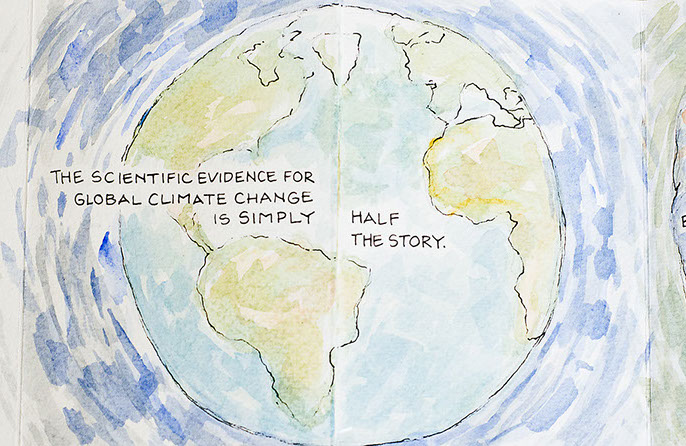 THE SCIENTIFIC EVIDENCE FOR
GLOBAL CLIMATE CHANGE
IS SIMPLY
HALF
THE STORY.